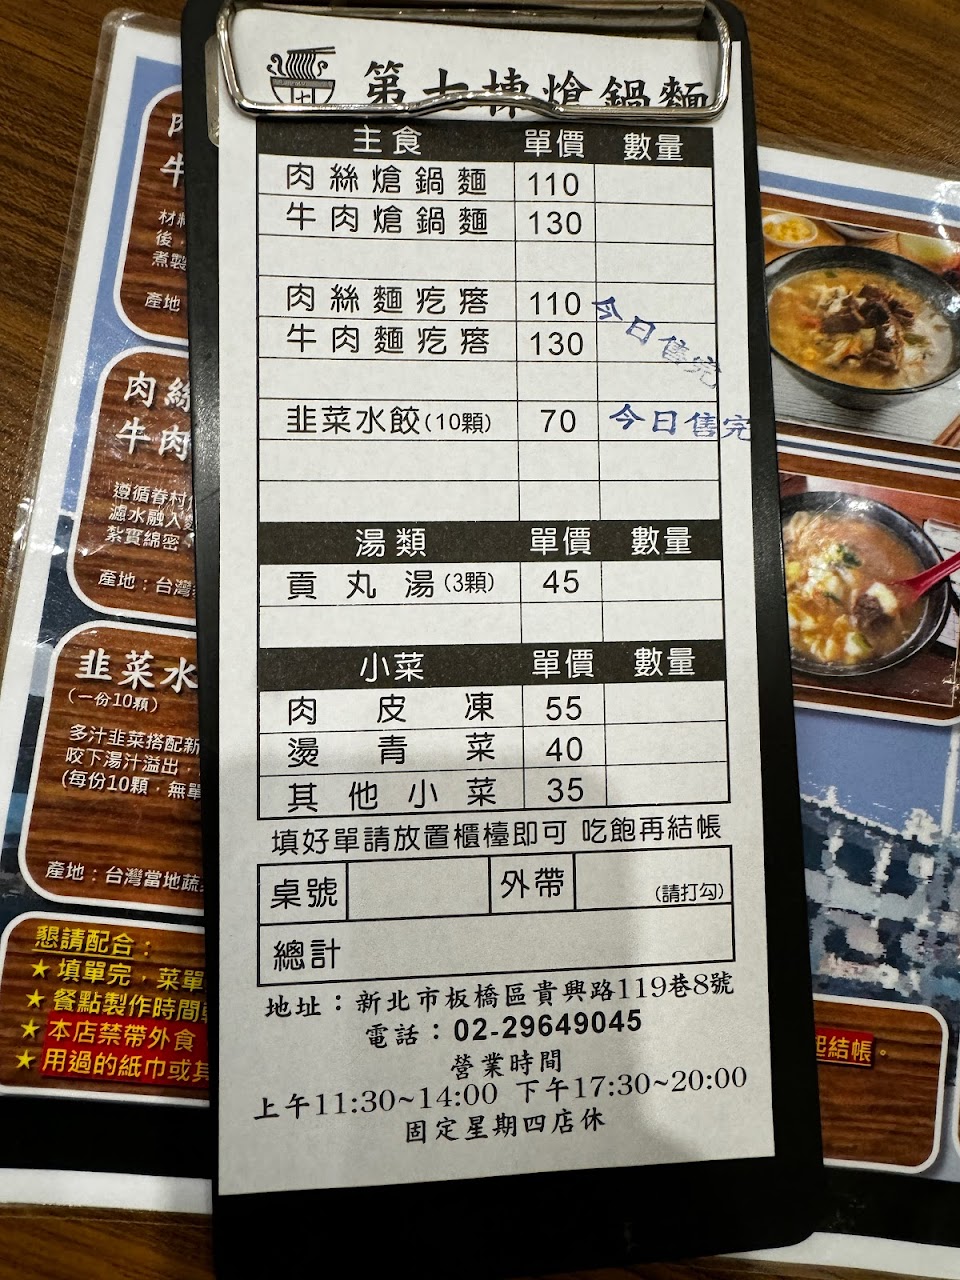 第七棟熗鍋麵
主食 單價 數量
肉絲熗鍋麵 110
牛肉熗鍋麵 130
肉絲麵疙瘩 110 今日售完
牛肉麵疙瘩 130
韭菜水餃(10顆) 70 今日售完
湯類 單價 數量
貢丸湯(3顆) 45
小菜 單價 數量
肉皮凍 55
燙青菜 40
其他小菜 35
填好單請放置櫃檯即可 吃飽再結帳
桌號 外帶 (請打勾)
總計
地址：新北市板橋區貴興路119巷8號
電話：02-29649045
營業時間
上午11:30~14:00 下午17:30~20:00
固定星期四店休
牛
後，
煮製
產地
肉絲
牛肉
遵循眷村
濾水融入
紮實綿密，
產地：台灣
韭菜水
(一份10顆)
多汁韭菜搭配新
咬下湯汁溢出，
(每份10顆，無單
產地：台灣當地蔬
懇請配合：
★填單完，菜單
★餐點製作時間
★本店禁帶外食
★用過的紙巾或其
起結帳。